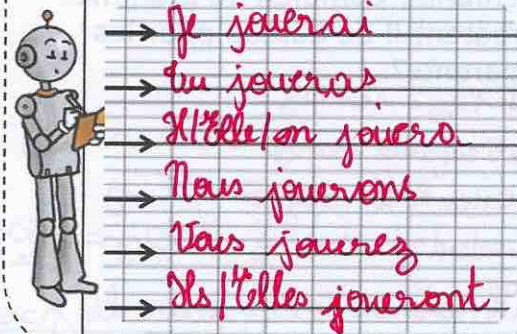 Je jouerai
Tu joueras
Il/Elle/on jouera
Nous jouerons
Vous jouerez
Ils/Elles joueront